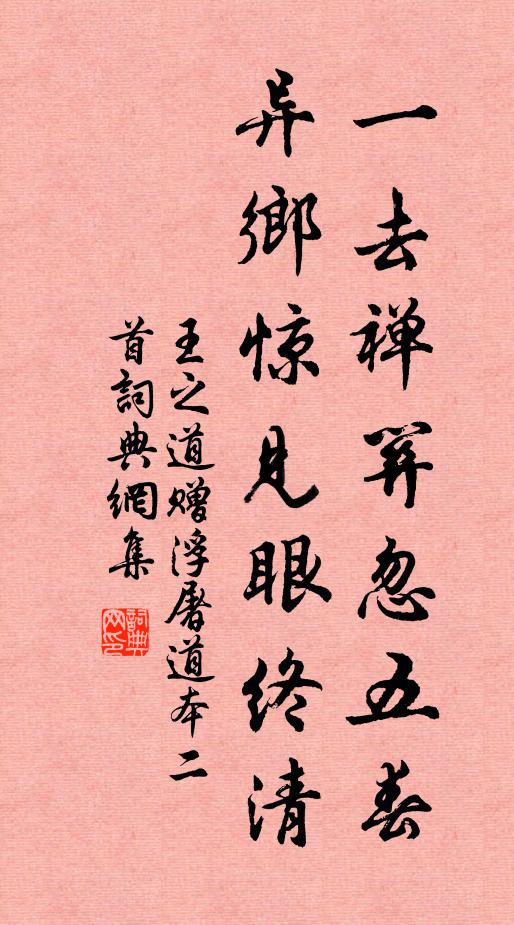 一去禅关忽五春
异鄉惊见眼终清
王之道赠浮屠道本二
首詞典網集
詞典網印